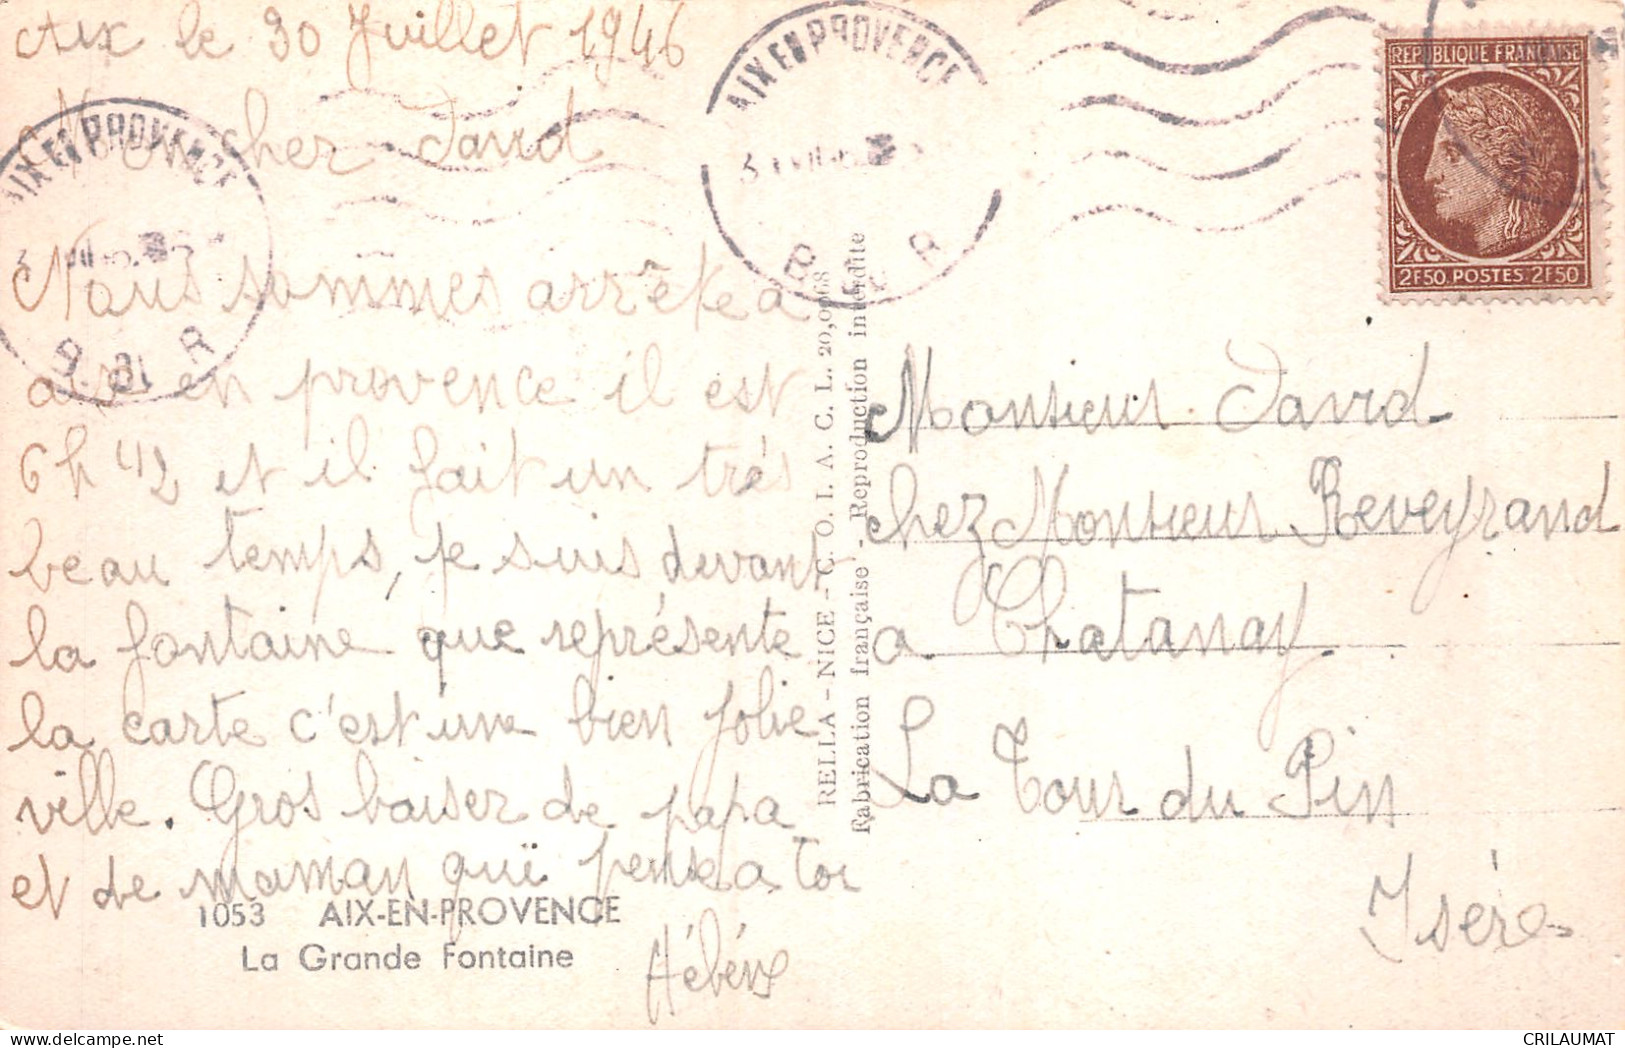 Aix le 30 Juillet 1946
Mon cher David
Nous sommes arrêtée a
aix en provence il est
6h 42 et il fait un trés
beau temps, je suis devant
la fontaine que représente
la carte c'est une bien jolie
ville. Gros baiser de papa
et de maman qui pense a toi
1053 AIX-EN-PROVENCE
La Grande Fontaine
AIX EN PROVENCE
B. DU R
AIX EN PROVENCE
B. DU R
RELLA - NICE - C. O. I. A. C. L. 20,0068
Fabrication française - Reproduction interdite
REPUBLIQUE FRANÇAISE
2F50. POSTES. 2F50
Monsieur David
chez Monsieur Reveyrand
a Chatanay
La Tour du Pin
Isère
CRILAUMAT